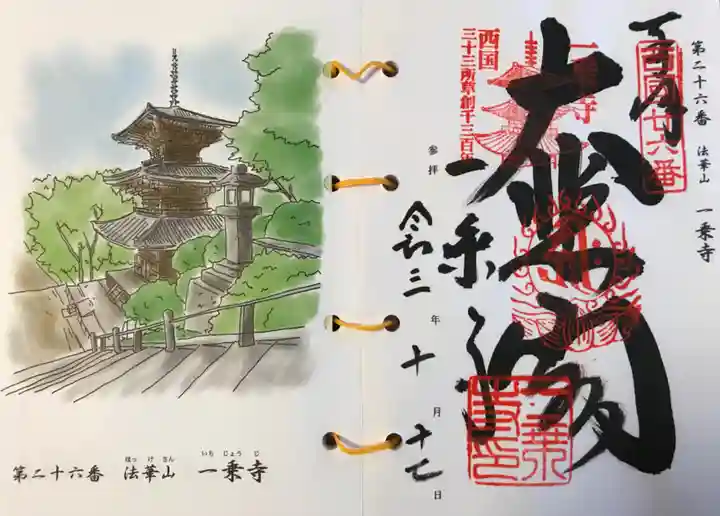 第二十六番 法華山 一乗寺
ほっけさん いちじょうじ
第二十六番 法華山 一乗寺
西国廿六番
奉拝
大悲閣
一乗寺
西国
三十三所草創千三百年
一乗寺
参拝 令和三年十月十七日